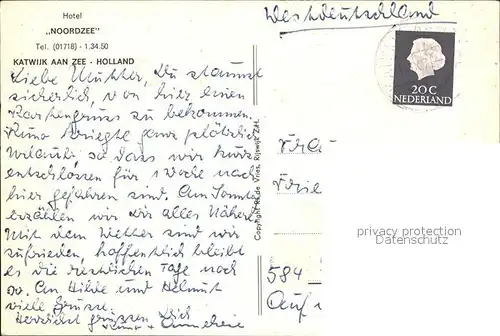 Hotel
„NOORDZEE"
Tel. (01718) - 1.34.50
KATWIJK AAN ZEE - HOLLAND
Westdeutschland
20 C
NEDERLAND
Liebe Mutter, Du staunst
sicherlich, von hier einen
Kartengruss zu bekommen.
Kuno kriegte ganz plötzlich
Urlaub, so dass wir kurz
entschlossen für 1 Woche nach
hier gefahren sind. Am Sonntag
erzählen wir Dir alles Nähere.
Mit dem Wetter sind wir
zufrieden, hoffentlich bleibt
es die restlichen Tage noch
so. An Hilde und Helmut
viele Grüsse.
Herzlichst grüssen Dich
Kuno + Annemarie
Copyright R. de Vries, Rijswijk Z.H.
584
Auf
privacy protection
Datenschutz